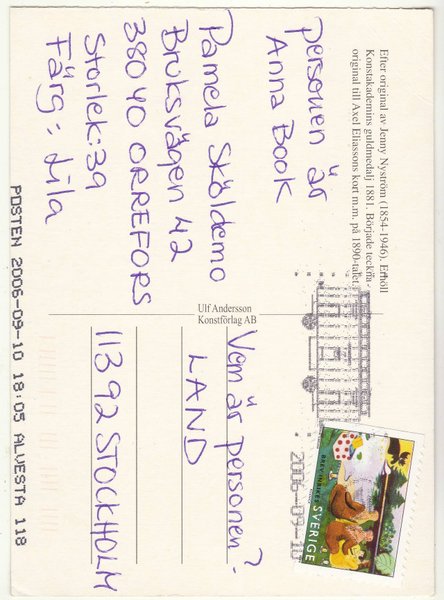 Efter original av Jenny Nyström (1854-1946). Erhöll
Konstakademins guldmedalj 1881. Började teckna
original till Axel Eliassons kort m.m. på 1890-talet.
personen är
Anna Book
Pamela Sköldemo
Bruksvägen 42
38040 ORREFORS
Storlek: 39
Färg: Lila
Ulf Andersson
Konstförlag AB
2006-09-10
BREV INRIKES SVERIGE
Vem är personen?
LAND
11392 STOCKHOLM
POSTEN 2006-09-10 18:05 ALVESTA 118